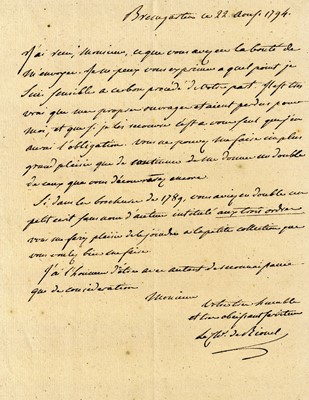 Bremgarten ce 22 Aoust 1794.
J'ai reçu, Monsieur, ce que vous avez eu la bonté de
m'envoyer. Je ne peux vous exprimer à quel point je
suis sensible à ce bon procédé de votre part. Il est très
vrai que mes propres ouvrages étaient perdus pour
moi, et que si je les recouvre c'est à vous seul que j'en
aurai l'obligation. Vous ne pouvez me faire un plus
grand plaisir que de continuer de me donner les doubles
de ceux que vous découvrirez encore.
Si dans les brochures de 1789, vous aviez en double un
petit écrit sans nom d'auteur intitulé aux trois ordres
vous me feriez plaisir de le joindre à la petite collection que
vous voulez bien me faire.
J'ai l'honneur d'être avec autant de reconnaissance
que de considération
Monsieur
votre très humble
et très obéissant serviteur
le Ch. de